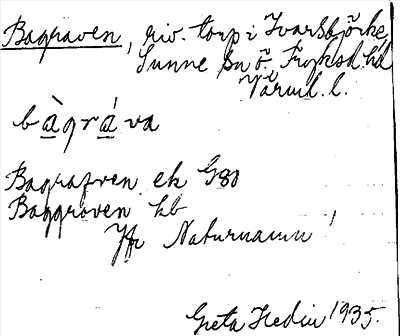 Bagraven, riv. torp i Ivarsbjörke,
Sunne sn Ö. Fryksd. hd
Värml. l.
bàgráva
Bagrafven ek G80
Baggroven hb
Jfr Naturnamn!
Greta Hedin 1935.